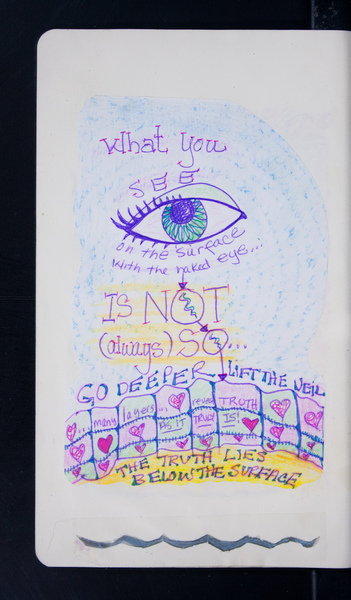 What you
SEE
on the surface
with the naked eye...
IS NOT
(always) SO...
GO DEEPER LIFT THE VEIL
many layers... reveal TRUTH
AS IT TRULY IS!
THE TRUTH LIES
BELOW THE SURFACE